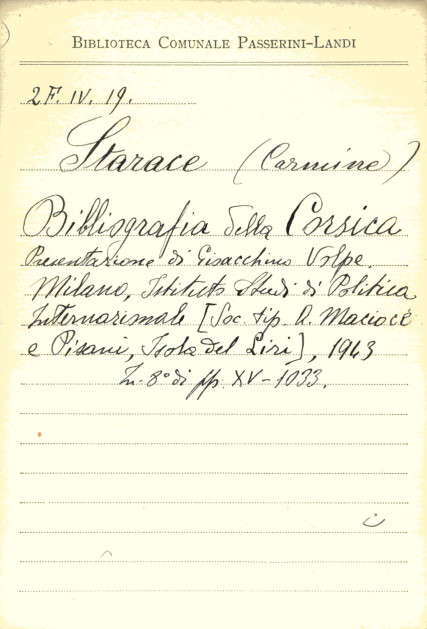 BIBLIOTECA COMUNALE PASSERINI-LANDI
2F. IV. 19.
Starace (Carmine)
Bibliografia della Corsica
Presentazione di Gioacchino Volpe.
Milano, Istituto Studi di Politica
Internazionale [Soc. tip. A. Macioce
e Pisani, Isola del Liri], 1943
In-8° di pp. XV-1033.